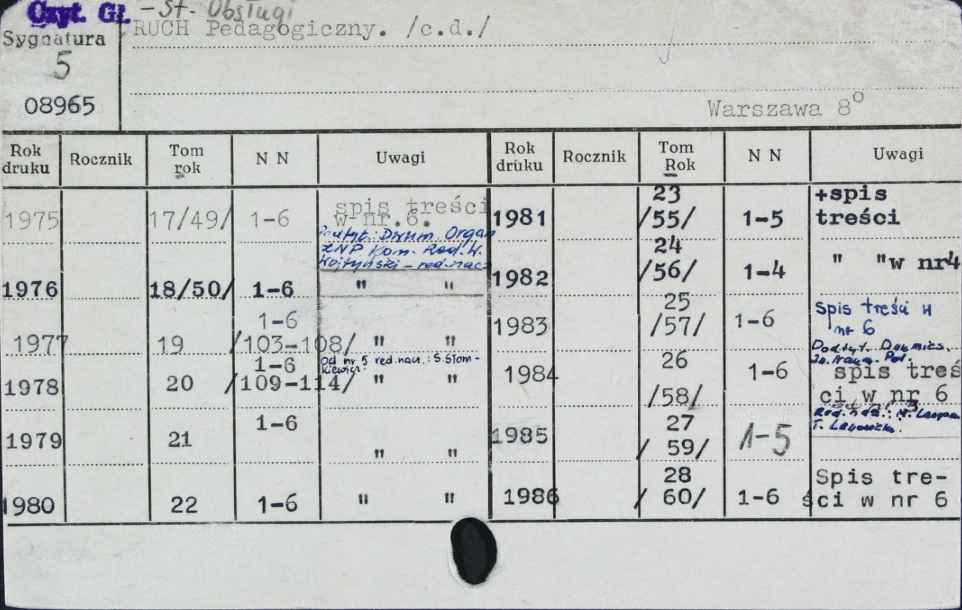 Czyt. Gł. - St. Obsługi
Sygnatura
5
08965
RUCH Pedagogiczny. /c.d./
Warszawa 8°
Rok druku Rocznik Tom rok N N Uwagi
1975 17/49/ 1-6 spis treści w nr.6.
ZNP Kom. Red. W.
Wojtyński - red. nacz.
1976 18/50/ 1-6 " "
1977 19 1-6 /103-108/ " "
Od nr 5 red. nau.: S. Słom-
kiewicz.
1978 20 1-6 /109-114/ " "
1979 21 1-6 " "
1980 22 1-6 " "
Rok druku Rocznik Tom Rok N N Uwagi
1981 23 /55/ 1-5 +spis treści
1982 24 /56/ 1-4 " "w nr4
1983 25 /57/ 1-6 spis treści w nr 6
1984 26 /58/ 1-6 spis treś ci w nr 6
1985 27 / 59/ 1-5
1986 28 / 60/ 1-6 Spis tre- ści w nr 6